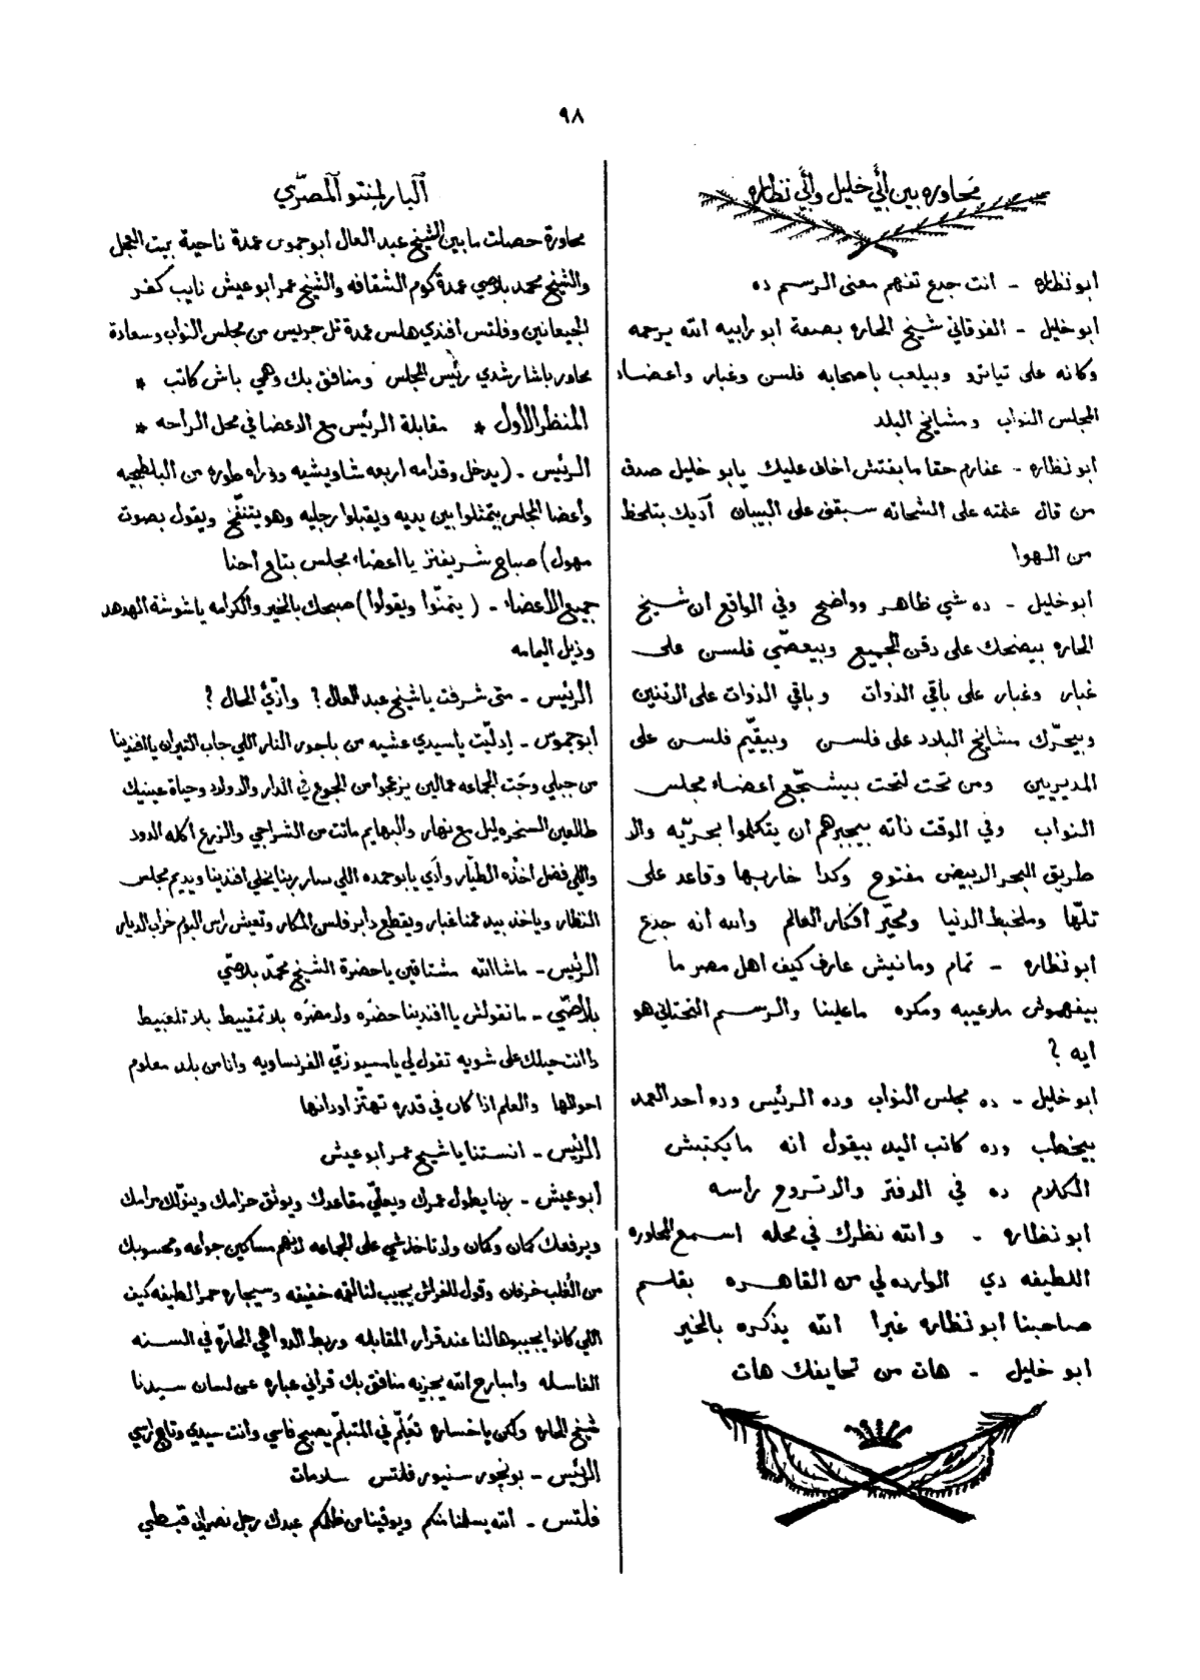 ٩٨
محاوره بين أبي خليل وأبي نظاره
ابو نظاره - انت جدع تفهم معنى الرسم ده
ابو خليل - الفوقاني شيخ الحاره بصفة ابو رابيه الله يرحمه
وكانه على تياترو وبيلعب باصحابه فلسن وغبار واعضاء
المجلس النواب ومشايخ البلد
ابو نظاره - عفارم حقا ما بقتش اخاف عليك يابو خليل صدق
من قال علمته على الشحاته سبقني على البيبان آديك بتلحظ
من الهوا
ابو خليل - ده شي ظاهر وواضح وفي الواقع ان شيخ
الحاره بيضحك على دقن الجميع وبيعصّي فلسن على
غبار وغبار على باقي الذوات وباقي الذوات على الاتنين
وبيحرّك مشايخ البلاد على فلسن وبيقيّم فلسن على
المديريين ومن تحت لتحت بيشجّع اعضاء مجلس
النواب وفي الوقت ذاته بيجبرهم ان يتكلموا بحريّه والا
طريق البحر الابيض مفتوح وكدا خاربها وقاعد على
تلّها وملخبط الدنيا ومحيّر أفكار العالم والله أنه جدع
ابو نظاره - تمام ومانيش عارف كيف اهل مصر ما
بيفهموش ملاعيبه ومكره ماعلينا والرسم التحتاني هو
ايه ؟
ابو خليل - ده مجلس النواب وده الرئيس وده احد العمد
بيخطب وده كاتب اليد بيقول انه ما يكتبش
الكلام ده في الدفتر والا تروح راسه
ابو نظاره - والله نظرك في محله اسمع المحاوره
اللطيفه دي الوارده لي من القاهره بقلم
صاحبنا ابو نظاره غبرا الله يذكره بالخير
ابو خليل - هات من تحايفك هات
البارلمنتو المصرّي
محاورة حصلت ما بين الشيخ عبد العال ابو جموس عمدة ناحية بيت العجل
والشيخ محمد بلاصي عمدة كوم الشقافه والشيخ عمر ابو عيش نايب كفر
الجيعانين وفلتس أفندي هلس عمدة تل جريس من مجلس النواب وسعادة
محاور باشا رشدي رئيس المجلس ومنافق بك وهمي باش كاتب *
المنظر الأول * مقابلة الرئيس مع الاعضا في محل الراحه *
الرئيس - (يدخل وقدامه اربعه شاويشيه ووراه طوره من البلطجيه
وأعضا المجلس يتمثلوا بين يديه ويقبلوا رجليه وهو يتنفّخ ويقول بصوت
مهول) صباح شريفنز يا اعضاء مجلس بتاع احنا
جميع الأعضاء - (يتمنّوا ويقولوا) صبحك بالخير والكرامه ياشوشة الهدهد
وذيل اليمامه
الرئيس - متى شرفت ياشيخ عبد العال ؟ وأزّيّ الحال ؟
أبو جموس - إدلّيت ياسيدي عشيه من بابور النار اللي جاب التيران ياافندينا
من جبلي وجَت الجماعه عمالين يزعجوا من الجوع في الدار والاولاد وحياة عينيك
طالعين السخره ليل مع نهار والبهايم ماتت من الشراجي والزرع اكله الدود
واللي فضل أخذه الطيّار وآدي يابو حمده اللي سار ربنا يخلي افندينا ويديم مجلس
النظار وياخد بيد عمنا غبار ويقطع دابر فلس المكار وتعيش راس البوم خراب الديار
الرئيس - ماشاالله مشتاقين ياحضرة الشيخ محمّد بلاصّي
بلاصّي - ما تقولش ياافندينا حضره ولا مضره بلا تمقييط بلا تلعبيط
داانت حيلك على شويه تقول لي يامسيو زيّ الفرنساويه وانا من بلد معلوم
احوالها والعلم اذا كان في قدره تهتّز اودانها
الرئيس - انستنا ياشيخ عمر ابو عيش
أبو عيش - ربنا يطول عمرك ويعلّي مقاعدك ويوثق حزامك وينوّلك مرامك
ويرفعك كمان وكمان ولا تاخذشي على الجماعه لانهم مساكين جواعه ومحسوبك
من الغُلب خرفان وقول للفراش يجيب لنا لقمه خفيفه وسيجاره حمرا لطيفه كيف
اللي كانوا يجيبوها لنا عند قرار المقابله وربط الدواهي الحارّه في السنه
الفاسله وامبارح الله يجزيه منافق بك قراني عباره عن لسان سيدنا
شيخ الحاره ولكن ياخساره تعَلِّم في المتبلّم يصبح ناسي وانت سيدي وتاج راسي
الرئيس - بونجور سنيور فلتس سلامات
فلتس - الله يسلمنا منكم ويوقينا من ظلمكم عبدك رجل نصراني قبطي